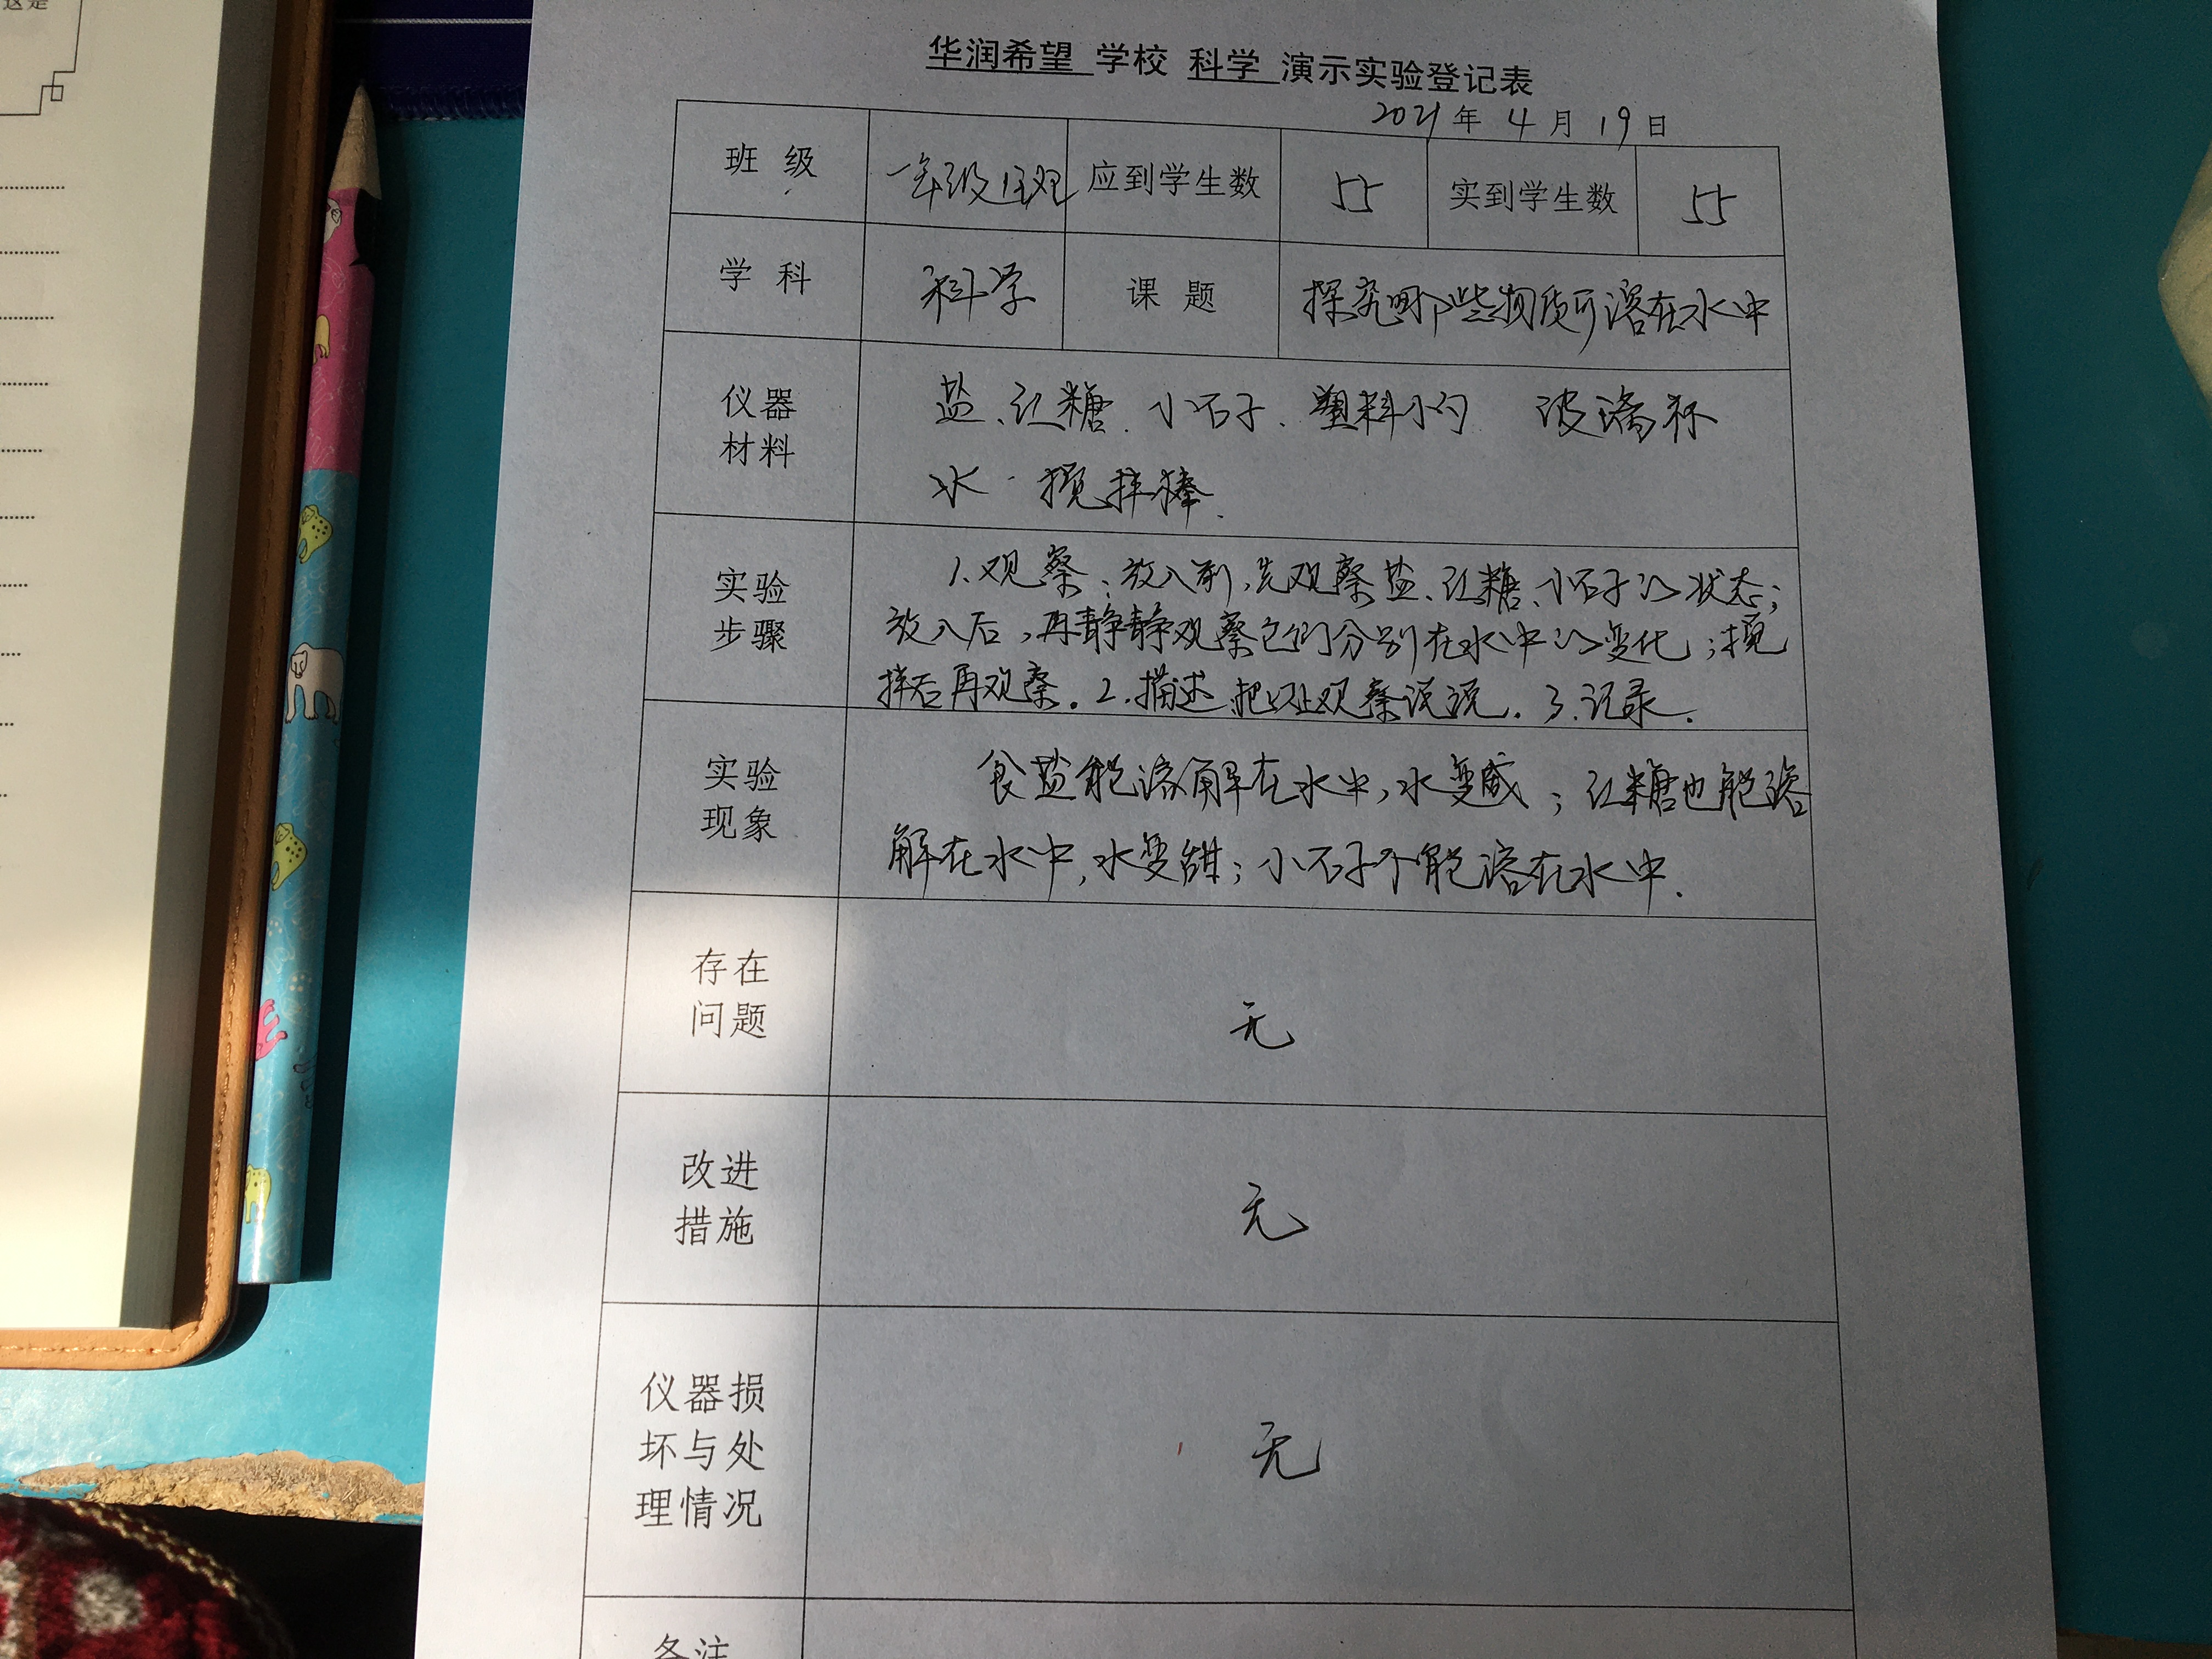 这是
华润希望 学校 科学 演示实验登记表
2021年 4月 19日
班 级 一年级1班 应到学生数 55 实到学生数 55
学 科 科学 课 题 探究哪些物质可溶在水中
仪器
材料
盐、红糖、小石子、塑料小勺 玻璃杯
水 搅拌棒.
实验
步骤
1.观察:放入前,先观察盐、红糖、小石子的状态;
放入后,再静静观察它们分别在水中的变化;搅
拌后再观察.2.描述:把以上观察说说.3.记录.
实验
现象
食盐能溶解在水中,水变咸;红糖也能溶
解在水中,水变甜;小石子不能溶在水中.
存在
问题
无
改进
措施
无
仪器损
坏与处
理情况
无
备注